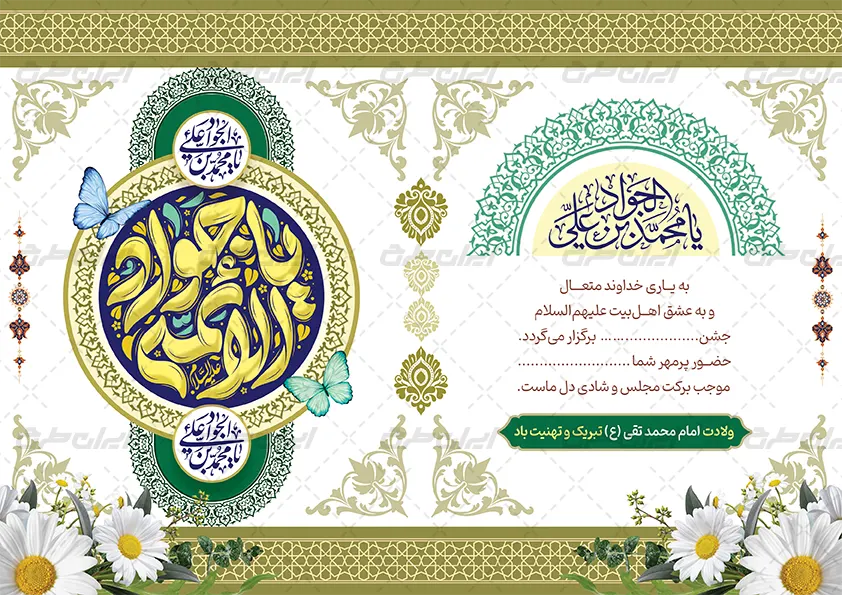 یا محمد بن علی الجواد
به یاری خداوند متعال
و به عشق اهل‌بیت علیهم‌السلام
جشن...................... برگزار می‌گردد.
حضور پرمهر شما.........................
موجب برکت مجلس و شادی دل ماست.
ولادت امام محمد تقی (ع) تبریک و تهنیت باد
یا محمد بن علی الجواد
یا جواد الائمه
علیه السلام
یا محمد بن علی الجواد
ایران طرح